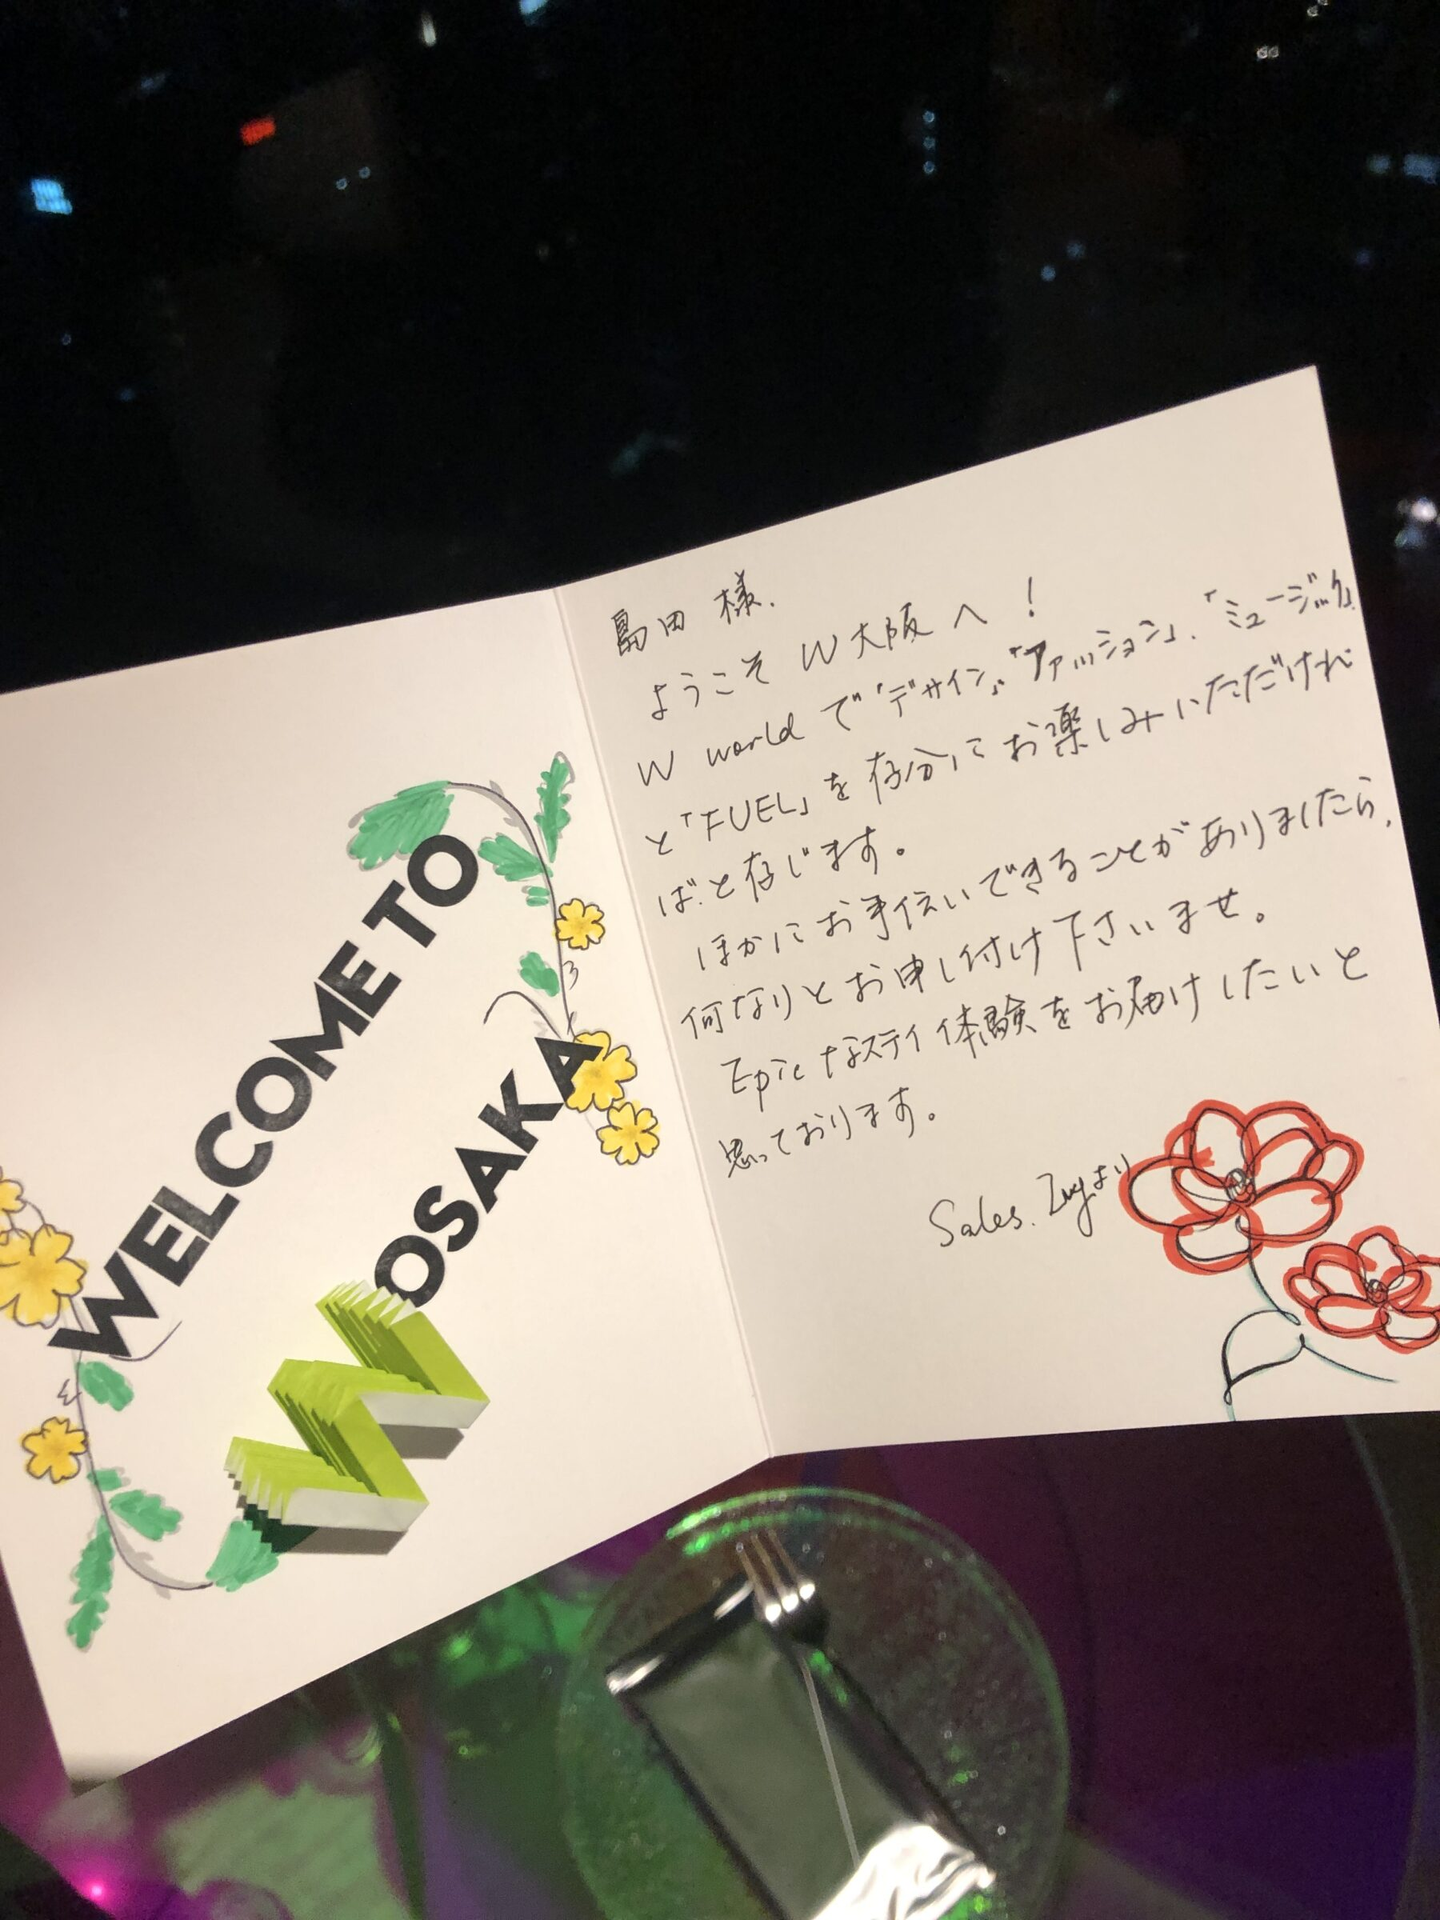 WELCOME TO
W OSAKA
島田 様.
ようこそ W大阪へ!
W worldで「デザイン」「ファッション」、「ミュージック」
と「FUEL」を存分にお楽しみいただけれ
ばと存じます。
ほかにお手伝いできることがありましたら、
何なりとお申し付け下さいませ。
Epicなステイ体験をお届けしたいと
思っております。
Sales. より